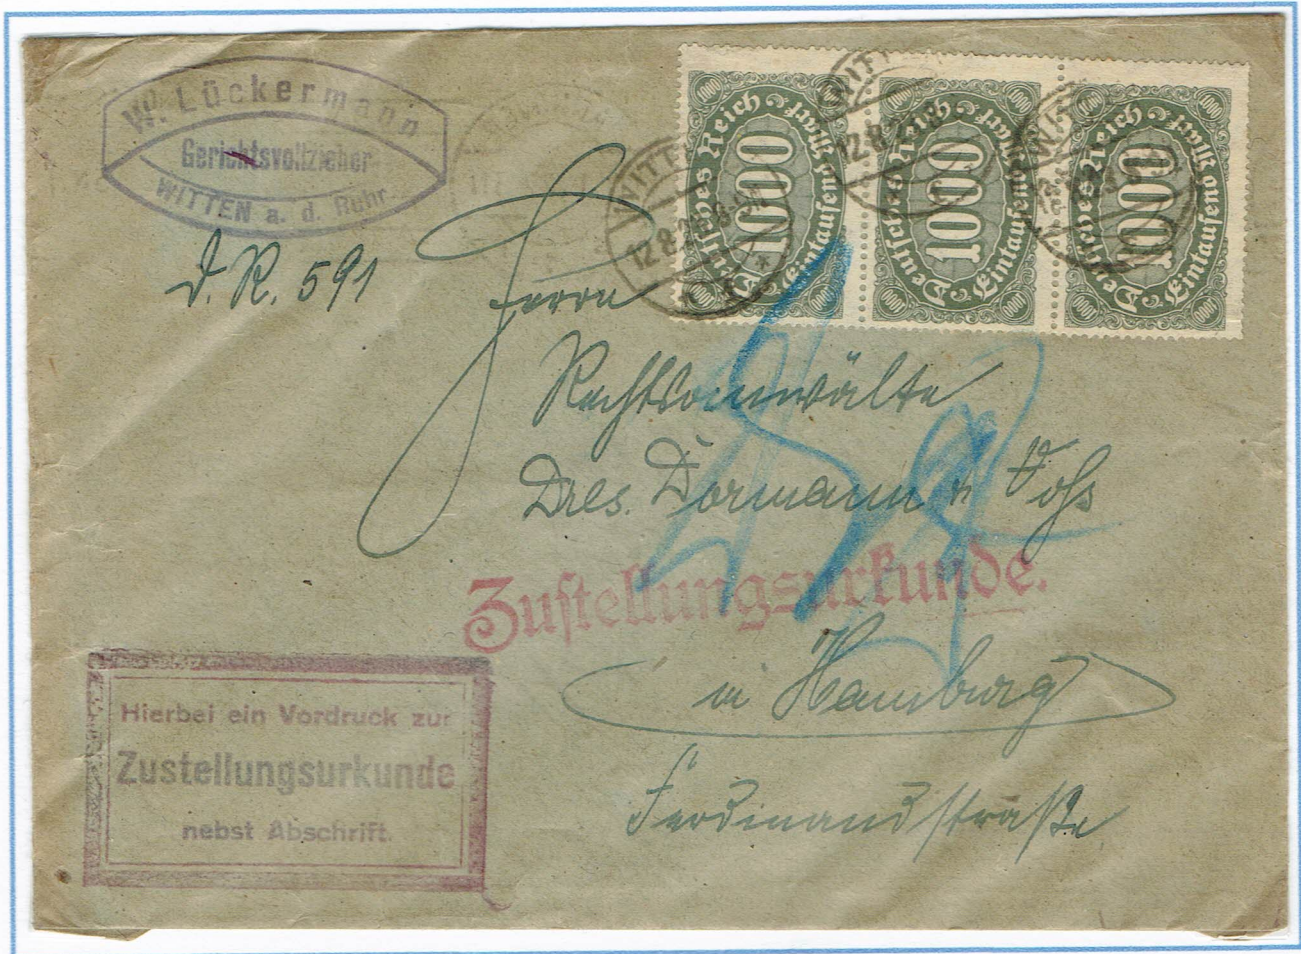 W. Lückermann
Gerichtsvollzieher
WITTEN a. d. Ruhr.
D. R. 591
Deutsches Reich 1000 Eintausend Mark
Deutsches Reich 1000 Eintausend Mark
Deutsches Reich 1000 Eintausend Mark
WITTEN
12.8.23
Herrn
Rechtsanwälte
Dres. Dormann & Vohs
Zustellungsurkunde.
in Hamburg
Ferdinandstraße
Hierbei ein Vordruck zur
Zustellungsurkunde
nebst Abschrift.